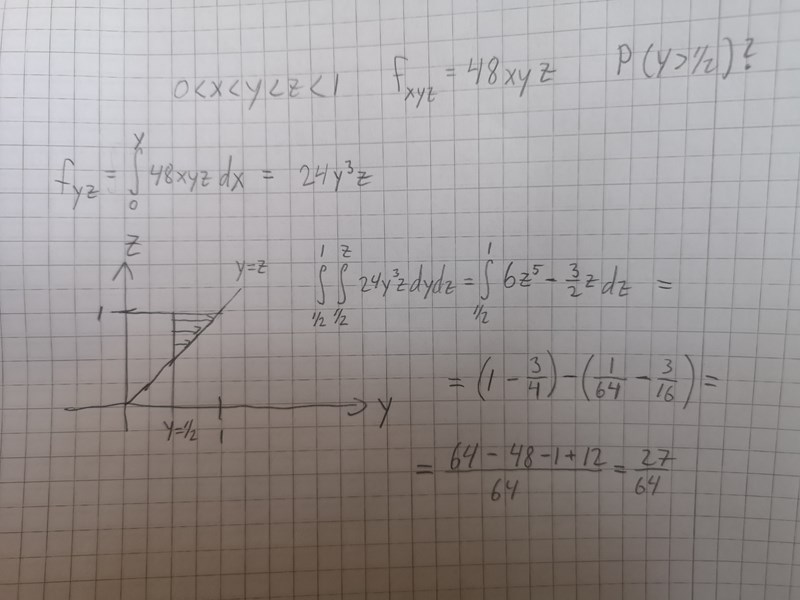 0<x<y<z<1 f_xyz = 48xyz P(y>1/2)?
f_yz = ∫_0^y 48xyz dx = 24y³z
z
y=z
1
y=1/2 1 y
∫_{1/2}^{1} ∫_{1/2}^{z} 24y³z dy dz = ∫_{1/2}^{1} 6z⁵ - 3/2 z dz =
= (1 - 3/4) - (1/64 - 3/16) =
= (64 - 48 - 1 + 12)/64 = 27/64